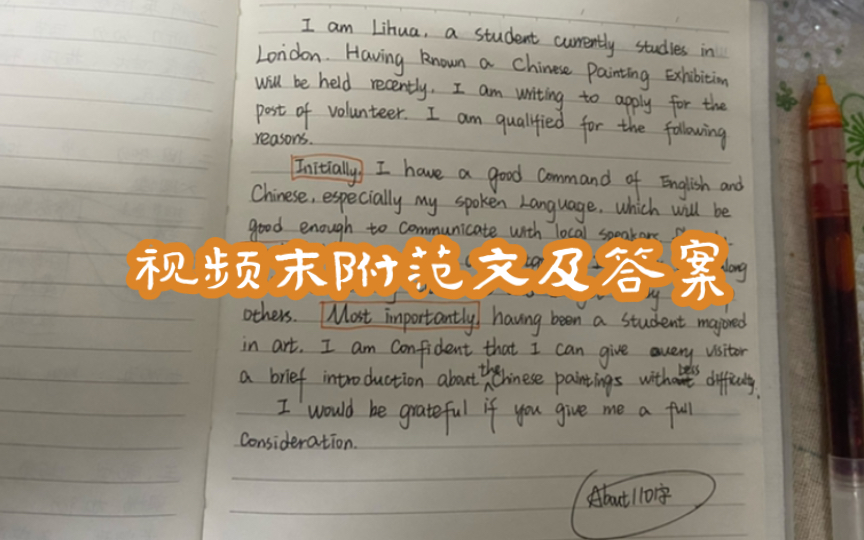 I am Lihua, a student currently studies in
London. Having known a Chinese Painting Exhibition
will be held recently, I am writing to apply for the
post of volunteer. I am qualified for the following
reasons.
Initially, I have a good command of English and
Chinese, especially my spoken language, which will be
good enough to communicate with local speakers.
视频末附范文及答案
others. Most importantly, having been a student majored
in art, I am confident that I can give every visitor
a brief introduction about the Chinese paintings with less difficulty.
I would be grateful if you give me a full
consideration.
About 110字